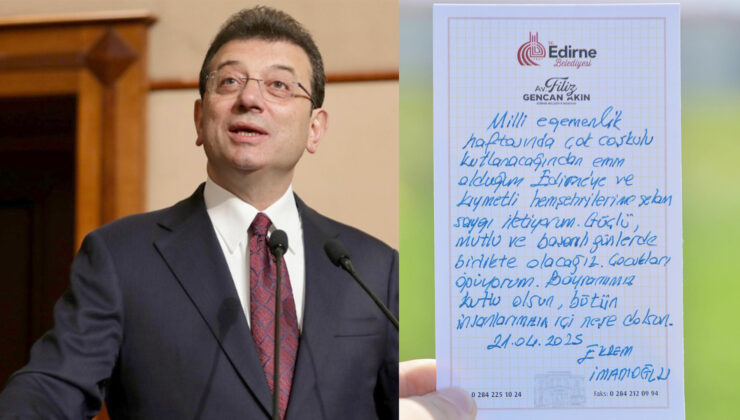 T.C.
Edirne
Belediyesi
Av. Filiz
GENCAN AKIN
EDİRNE BELEDİYE BAŞKANI
Milli egemenlik
haftasında çok coşkulu
kutlanacağından emin
olduğum Edirne'ye ve
kıymetli hemşehrilerime selam
saygı iletiyorum. Güçlü,
mutlu ve başarılı günlerde
birlikte olacağız. Çocukları
öpüyorum. Bayramımız
kutlu olsun, bütün
insanlarımızın içi neşe dolsun.
21.04.2025
Ekrem
İMAMOĞLU
0 284 225 10 24
Faks: 0 284 212 09 94